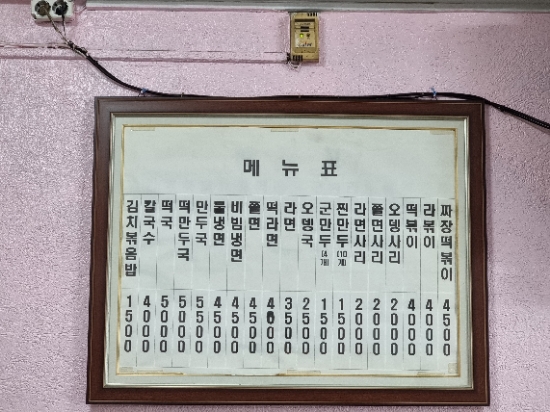 메뉴표
김치볶음밥 1500
칼국수 4000
떡국 5000
떡만두국 5000
만두국 5500
물냉면 4500
비빔냉면 4500
쫄면 4500
떡라면 4000
라면 3500
오뎅국 2500
군만두(4개) 1500
찐만두(10개) 1500
라면사리 2000
쫄면사리 2000
오뎅사리 2000
떡볶이 4000
라볶이 4000
짜장떡볶이 4500